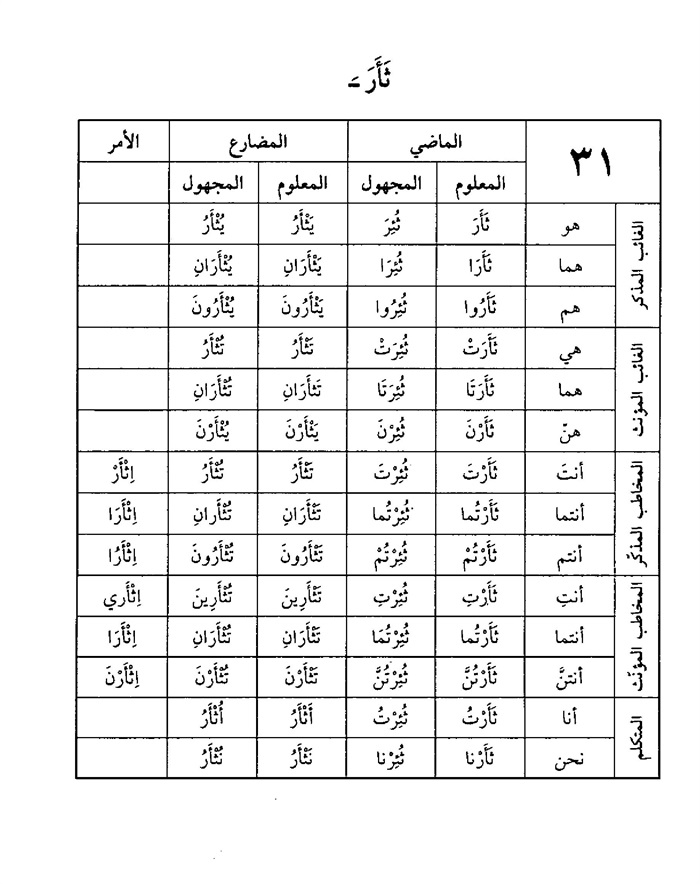 ثَأَرَ ـَ
٣١ الماضي المضارع الأمر
المعلوم المجهول المعلوم المجهول
الغائب المذكر
هو ثَأَرَ ثُئِرَ يَثْأَرُ يُثْأَرُ
هما ثَأَرَا ثُئِرَا يَثْأَرَانِ يُثْأَرَانِ
هم ثَأَرُوا ثُئِرُوا يَثْأَرُونَ يُثْأَرُونَ
الغائب المؤنث
هي ثَأَرَتْ ثُئِرَتْ تَثْأَرُ تُثْأَرُ
هما ثَأَرَتَا ثُئِرَتَا تَثْأَرَانِ تُثْأَرَانِ
هنّ ثَأَرْنَ ثُئِرْنَ يَثْأَرْنَ يُثْأَرْنَ
المخاطب المذكّر
أنتَ ثَأَرْتَ ثُئِرْتَ تَثْأَرُ تُثْأَرُ اِثْأَرْ
أنتما ثَأَرْتُما ثُئِرْتُما تَثْأَرَانِ تُثْأَرانِ اِثْأَرَا
أنتم ثَأَرْتُمْ ثُئِرْتُمْ تَثْأَرُونَ تُثْأَرُونَ اِثْأَرُا
المخاطب المؤنّث
أنتِ ثَأَرْتِ ثُئِرْتِ تَثْأَرِينَ تُثْأَرِينَ اِثْأَري
أنتما ثَأَرْتُما ثُئِرْتُمَا تَثْأَرَانِ تُثْأَرَانِ اِثْأَرَا
أنتنَّ ثَأَرْتُنَّ ثُئِرْتُنَّ تَثْأَرْنَ تُثْأَرْنَ اِثْأَرْنَ
المتكلم
أنا ثَأَرْتُ ثُئِرْتُ أَثْأَرُ أُثْأَرُ
نحن ثَأَرْنا ثُئِرْنا نَثْأَرُ نُثْأَرُ